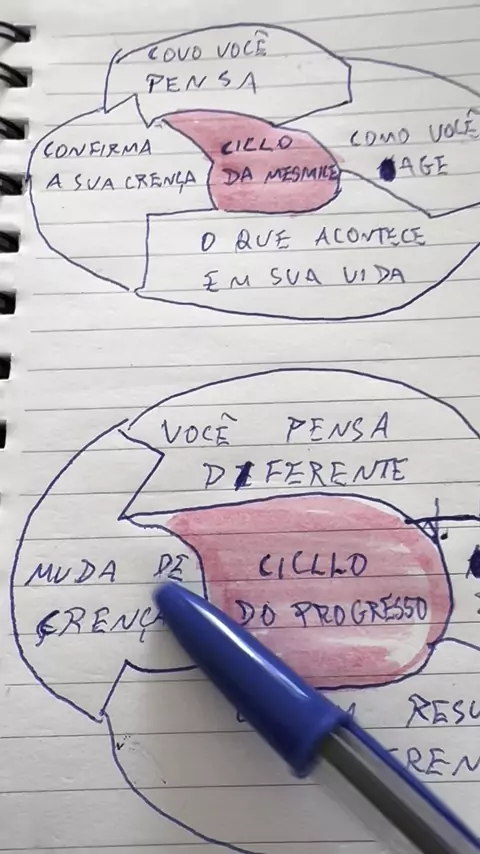 COVO VOCÊ
PENSA
CONFIRMA
A SUA CRENÇA
CICLO
DA MESMICE
COMO VOCÊ
AGE
O QUE ACONTECE
EM SUA VIDA
VOCÊ PENSA
DIFERENTE
MUDA DE
CRENÇA
CICLLO
DO PROGRESSO